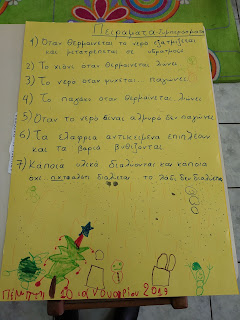 Πειράματα-Συμπεράσματα
1) Όταν θερμαίνεται το νερό εξατμίζεται
και μετατρέπεται σε υδρατμούς
2) Το χιόνι όταν θερμαίνεται λιώνει
3) Το νερό όταν ψύχεται... παγώνει.
4) Το παγάκι όταν θερμαίνεται λιώνει
5) Όταν το νερό είναι αλμυρό δεν παγώνει
6) Τα ελαφριά αντικείμενα επιπλέουν
και τα βαριά βυθίζονται
7) Κάποια υλικά διαλύονται και κάποια
όχι. πχ το αλάτι διαλύεται το λάδι δεν διαλύεται
ΠΕΜΠΤΗ 10 Ιανουαρίου 2019